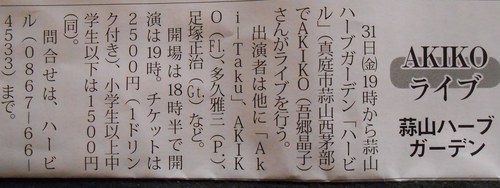 AKIKO
ライブ
蒜山ハーブ
ガーデン
31日㈮19時から蒜山
ハーブガーデン「ハービ
ル」（真庭市蒜山西茅部）
でAKIKO（吾郷晶子）
さんがライブを行う。
出演者は他に「Ak
i―Taku」、AKIK
O（Fl）、多久雅三（P.）、
足塚正治（Gt.）など。
開場は18時半で開
演は19時。チケットは
2500円（1ドリン
ク付き）、小学生以上中
学生以下は1500円
（同）。
問合せは、ハービ
ル（0867―66―
4533）まで。